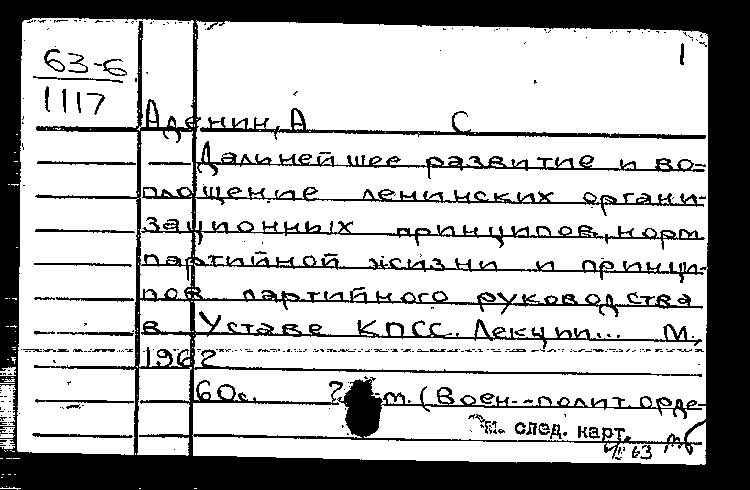 1
63-6
1117
Аденин, А С
Дальнейшее развитие и во=
площение ленинских органи-
зационных принципов, норм
партийной жизни и принци-
пов партийного руководства
в Уставе КПСС. Лекции... М.,
1962
60с. т. (Воен.-полит. орде-
см. след. карт.
63